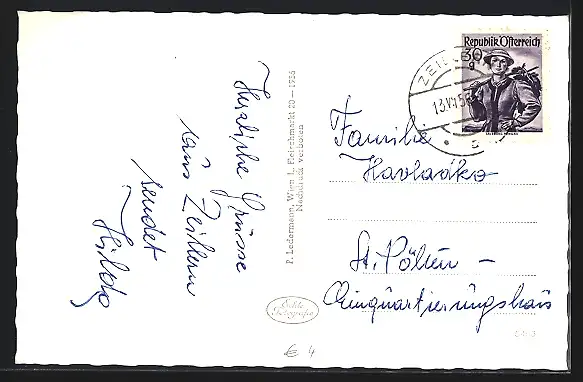 Herzliche Grüsse
aus Zeillern
sendet
Hilde
P. Ledermann, Wien I., Fleischmarkt 20 — 1956
Nachdruck verboten
Echte
Fotografie
Republik Österreich
30
g
ZEILLE
13.VII.56
Familie
Havladko
St. Pölten –
Einquartierungshaus
€ 4